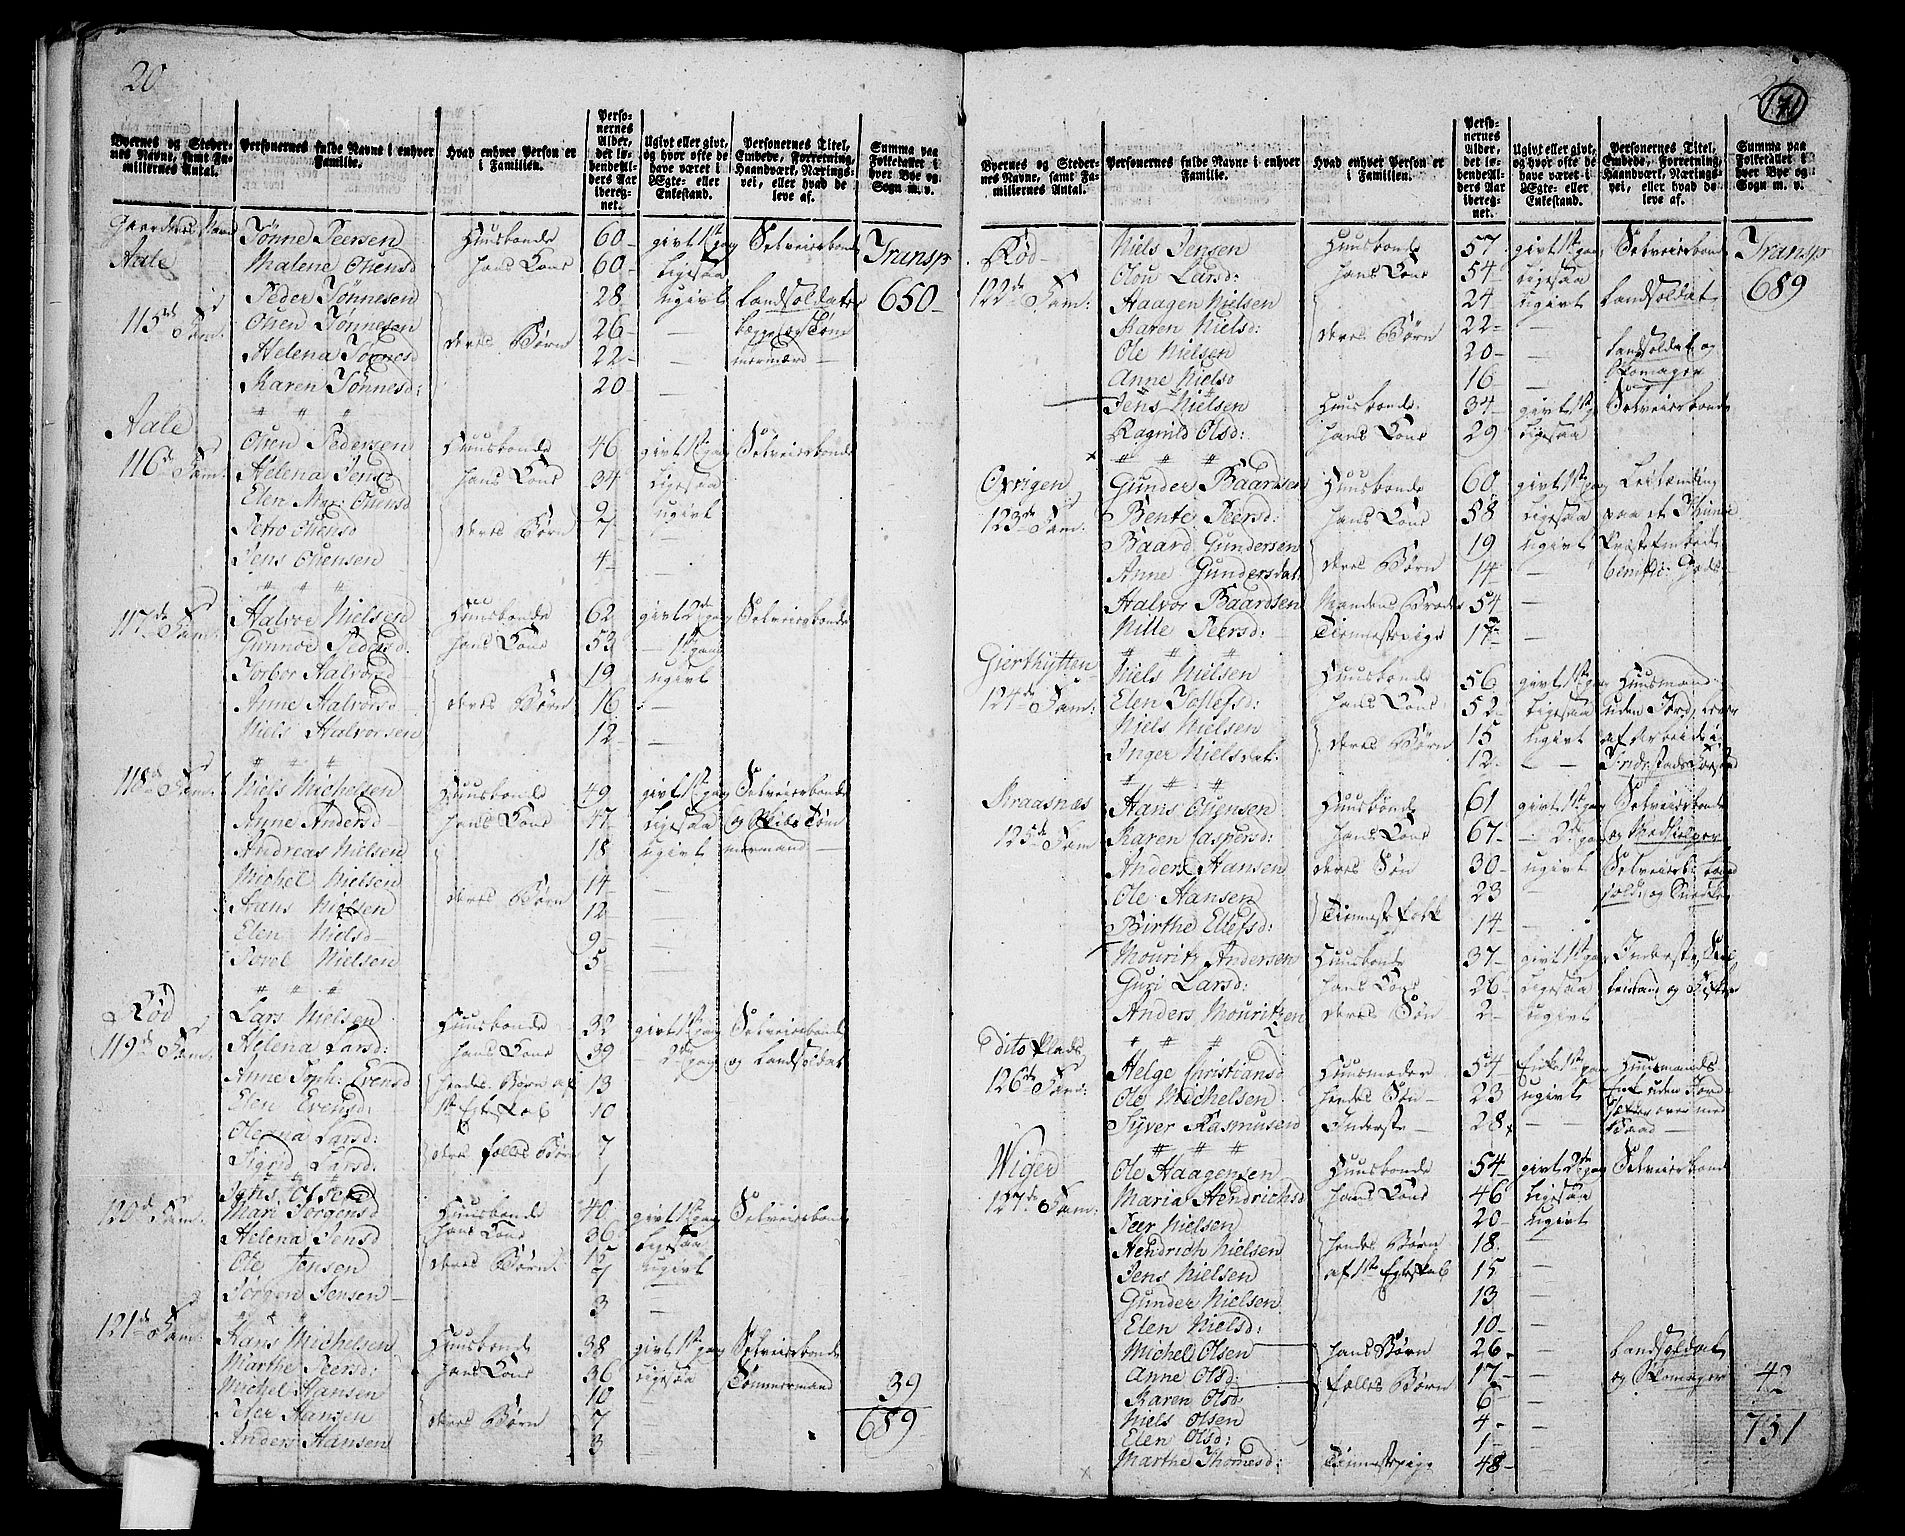 20
Byernes og Stedernes Navne, samt Familliernes Antal.
Personernes fulde Navne i enhver Familie.
Hvad enhver Person er i Familien.
Personernes Alder, det løbende Alders Aar iberegnet.
Ugivt eller givt, og hvor ofte de have været i Egte- eller Enkestand.
Personernes Titel, Embede, Forretning, Haandværk, Næringsvei, eller hvad de leve af.
Summa paa Folketallet i hver Bye og Sogn m. v.
Tønne Peersen Huusbonde 60 givt 1st gang Selveierbonde Transp
Aale Malene Olsensd hans Kone 60 Ligesaa
Peder Tønnesen 28 ugivt Landsoldater 650
115de Fam. Olsen Tønnesen deres Børn 26 — begge og Tøm
Helena Tønnesd 22 — mermænd
Karen Tønnesd: 20 —
Aale
116de Fam. Olsen Pedersen Huusbonde 46 givt 1st gang Selveierbonde
Helena Jensd hans Kone 34 Ligesaa
Elen Mar: Olsensd 9 ugivt
Petro Olsensd deres Børn 7 —
Jens Olsensen 4 —
117de Fam. Halvor Nielsen Huusbonde 62 givt 2de gang Selveierbonde
Gunnor Pedersd. hans Kone 53 — 1st gang
Torbor Halvorsd 19 ugivt
Anne Halvorsd deres Børn 16 —
Niels Halvorsen 12 —
118de Fam. Niels Michelsen Huusbonde 49 givt 1st gang Selveierbonde
Anne Andersd hans Kone 47 Ligesaa og Skibs Tøm
Andreas Nielsen 18 ugivt mermand
Michel Nielsen 14 —
Hans Nielsen deres Børn 12 —
Elen Nielsd 9 —
Povel Nielsen 5 —
Rød
119de Fam. Lars Nielsen Huusbonde 32 givt 1st gang Selveierbonde
Helena Larsd: hans Kone 39 — 2de gang og Landsoldat
Anne Soph: Evensd hendes Børn af 13 —
Elen Evensd: 1st Egteskab 10 —
Oleana Larsd: deres fælles Børn 7 —
Sigrid Larsd: 1 —
120de Fam. Jens Olsen Huusbonde 40 givt 1st gang Selveierbonde
Mari Jørgensd hans Kone 36 Ligesaa
Helena Jensd deres Børn 15 ugivt
Ole Jensen 7 —
Jørgen Jensen 3 —
121de Fam. Hans Michelsen Huusbonde 38 givt 1st gang Selveierbonde
Marthe Peersd: hans Kone 36 Ligesaa Tømmermand 39
Michel Hansen 10 —
Peder Hansen deres Børn 7 — 689
Anders Hansen 3 —
171
Byernes og Stedernes Navne, samt Familliernes Antal.
Personernes fulde Navne i enhver Familie.
Hvad enhver Person er i Familien.
Personernes Alder, det løbende Alders Aar iberegnet.
Ugivt eller givt, og hvor ofte de have været i Egte- eller Enkestand.
Personernes Titel, Embede, Forretning, Haandværk, Næringsvei, eller hvad de leve af.
Summa paa Folketallet i hver Bye og Sogn m. v.
Rød Niels Jensen Huusbonde 57 givt 1st gang Selveierbonde Transp
122de Fam. Olou Larsd: hans Kone 54 Ligesaa
Haagen Nielsen 24 ugivt Landsoldat 689
Karen Nielsd: deres Børn 22 —
Ole Nielsen 20 — Landsoldat og
Anne Nielsd 16 — Skomager
Jens Nielsen Huusbonde 34 givt 1st g Selveierbonde
Ragnild Olsd: hans Kone 29 Ligesaa
Øvrigen Gunder Baardsen Huusbonde 60 givt 1st gang Leilænding
123de Fam. Bente Peersd: hans Kone 58 Ligesaa paa et
Baard Gundersen 19 ugivt
Anne Gundersdat: deres Børn 14 — Gods
Halvor Baardsen Mandens Broder 54 —
Nille Peersd: Tienestepige 17 —
Gierthytten Niels Nielsen Huusbonde 56 givt 1st gang Huusmand
124de Fam: Elen Tollefsd: hans Kone 52 Ligesaa uden Jord, lever
Niels Nielsen deres Børn 15 ugivt af Arbeide i
Inger Nielsdat: 12 — —
Straasnæs Hans Olsensen Huusbonde 61 givt 1st gang Selveierbonde
125de Fam Karen Caspersd: hans Kone 67 — 2de gang og
Anders Hansen deres Søn 30 ugivt Selveierb:
Ole Hansen 23 —
Birthe Ellefsd: Tienestefolk 14 —
Mouritz Andersen Huusbonde 37 givt 1st gang Inderste
Guri Larsd: hans Kone 26 Ligesaa og Fisker
Anders Mouritzen deres Søn 2 ugivt
Dito Plads
126de Fam: Helge Christiansd Huusmoder 54 Enke 1st gang Huusmands
Ole Michelsen hendes Søn 23 ugivt Enke uden Jord
Syver Rasmusen Inderste 28 — over med
Baad
Wiger Ole Haagensen Huusbonde 54 givt 2de gang Selveierbonde
127de Fam: Maria Hendrichsd hans Kone 46 Ligesaa
Peer Nielsen 20 ugivt
Hendrich Nielsen hendes Børn 18 —
Jens Nielsen af 1st Egteskab 15 —
Gunder Nielsen 13 —
Elen Nielsd: 10 —
Michel Olsen hans Børn 26 — Landsoldat
Anne Olsd: 17 — og Skomager 42
Karen Olsd: fælles Børn 6 —
Niels Olsen 4 — 731
Elen Olsd: 1 —
Marthe Thomesd: Tienestepige 48 —